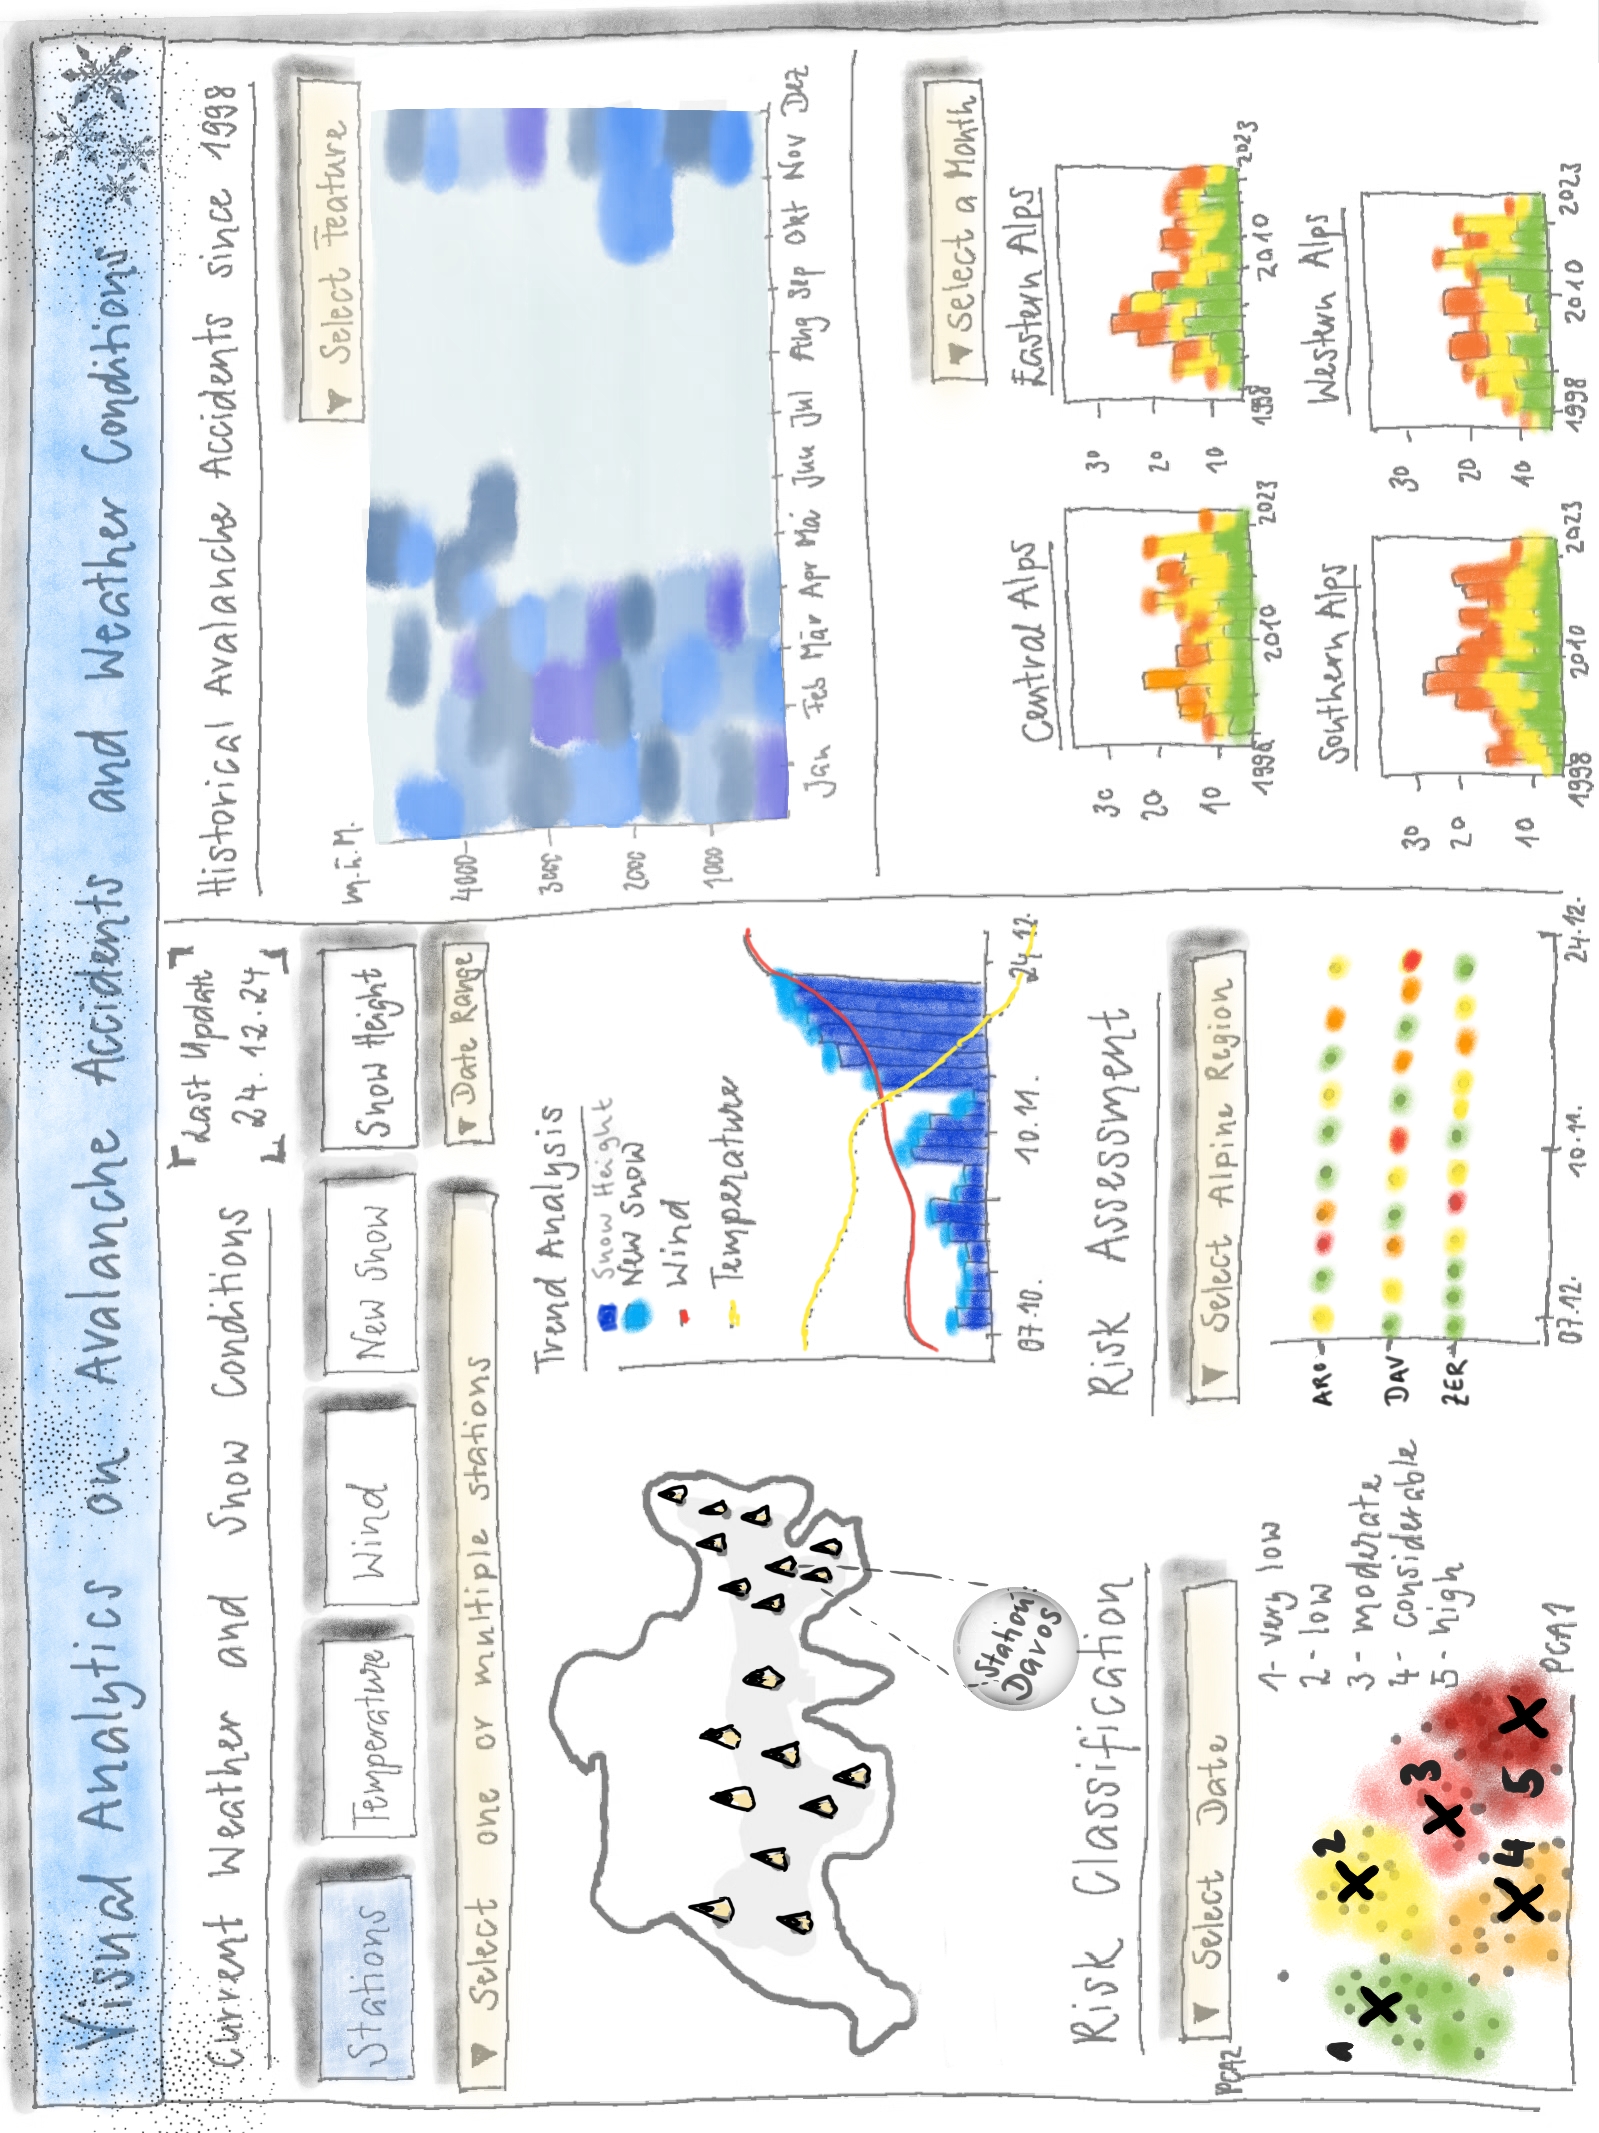 Visual Analytics on Avalanche Accidents and Weather Conditions
Current Weather and Snow Conditions
Last Update
24.12.24
Stations
Temperature
Wind
New Snow
Snow Height
▼ Select one or multiple stations
▼ Date Range
Station:
Davos
Trend Analysis
Snow Height
New Snow
Wind
Temperature
07.10.
10.11.
24.12.
Risk Classification
▼ Select Date
PCA2
1 - very low
2 - low
3 - moderate
4 - considerable
5 - high
1
2
3
4
5
PCA1
Risk Assessment
▼ Select Alpine Region
ARO
DAV
ZER
07.12.
10.11.
24.12.
Historical Avalanche Accidents since 1998
▼ Select Feature
m.ü.M.
4000
3000
2000
1000
Jan Feb Mär Apr Mai Jun Jul Aug Sep Okt Nov Dez
▼ Select a Month
Central Alps
30
20
10
1998 2010 2023
Eastern Alps
30
20
10
1998 2010 2023
Southern Alps
30
20
10
1998 2010 2023
Western Alps
30
20
10
1998 2010 2023